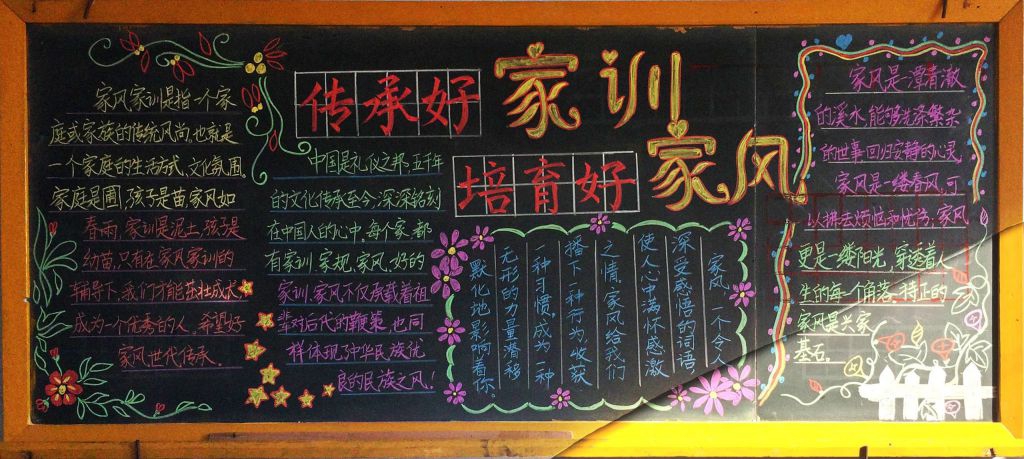 传承好家训
培育好家风
家风家训是指一个家
庭或家族的传统风尚,也就是
一个家庭的生活方式、文化氛围。
家庭是圃,孩子是苗家风如
春雨,家训是泥土,孩子是
幼苗,只有在家风家训的
辅导下,我们才能茁壮成长
成为一个优秀的人,希望好
家风世代传承。
中国是礼仪之邦,五千年
的文化传承至今,深深铭刻
在中国人的心中,每个家,都
有家训、家规、家风,好的
家训、家风不仅承载着祖
辈对后代的鞭策,也同
样体现了中华民族优
良的民族之风!
家风,一个令人
深受感悟的词语
使人心中满怀感激
之情,家风给我们
播下一种行为,收获
一种习惯,成为一种
无形的力量,潜移
默化地影响着你。
家风是一潭清澈
的溪水,能够洗涤繁杂
的世事,回归安静的心灵,
家风是一缕春风,可
以拂去烦恼和忧伤,家风
更是一缕阳光,穿透着人
生的每一个角落,特正的
家风是兴家
基石。